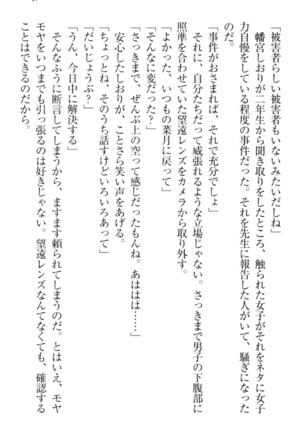 「被害者らしい被害者もいないみたいだしね」
幡宮しおりが二年生から聞き取りをしたところ、触られた女子がそれをネタに女子
力自慢をしている程度の事件だった。それを先生に報告した人がいて、騒ぎになった
のだ。
「事件がおさまれば、それで充分でしょ」
それに、自分たちだって威張れるような立場じゃない。さっきまで男子の下腹部に
照準を合わせていた望遠レンズをカメラから取り外す。
「よかった、いつもの菜月に戻って」
「そんなに変だった？」
「さっきまで、ぜんぶ上の空って感じだったもんね。あははは……」
安心したしおりが、ことさら笑い声をあげる。
「ちょっとね、そのうち話すけどいろいろあって」
「だいじょうぶ？」
「うん、今日中に解決する」
そんなふうに断言してしまうから、ますます頼られてしまうのだ。とはいえ、モヤ
モヤをいつまでも引っ張るのは好きじゃない。望遠レンズなんてなくても、確認する
ことはできるのだから。